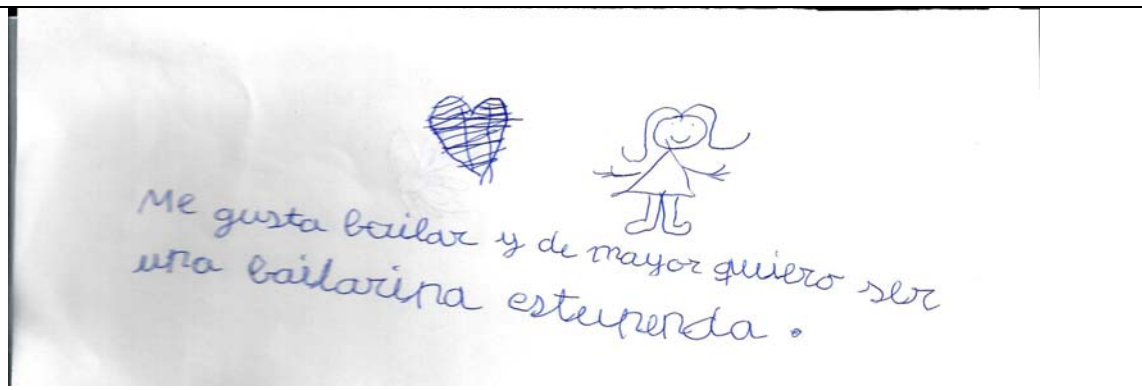 Me gusta bailar y de mayor quiero ser
una bailarina estupenda.